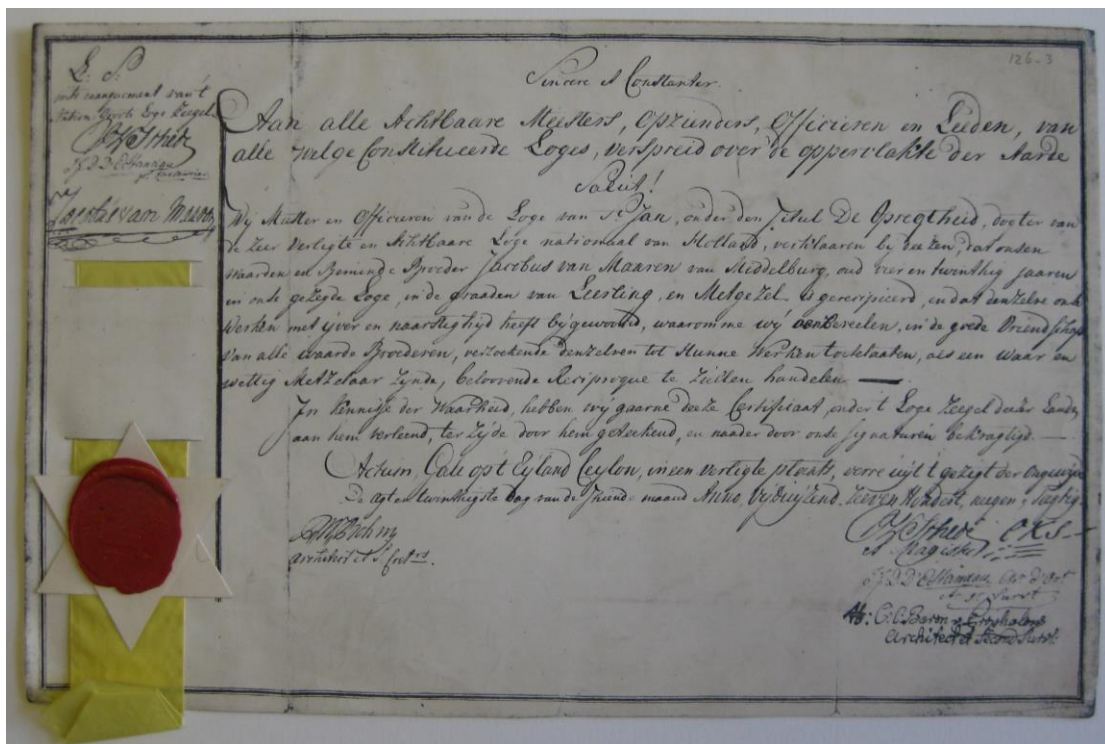 126-3
L: S:
van't
Nation: Groote Loge Zeegel
Jacobus van Maaren
Sincere et Constanter.
Aan alle Achtbaare Meesters, Opzienders, Officieren en Leeden, van
alle welgeconstitueerde Loges, verspreid over de oppervlakte der Aarde
Salut!
Wij Meester en Officieren van de Loge van St. Jan, onder den Titul De Opregtheid, dogter van
de zeer Verligte en Achtbaare Loge nationaal van Holland, verklaaren by deezen, dat onsen
waarden en Beminde Broeder Jacobus van Maaren van Middelburg, oud vier en twinthig jaaren
in onse gezegde Loge, in de graaden van Leerling, en Metgezel is gerecipieerd, en dat denzelve onse
Werken met yver en naarstighyd heeft bygewoond, waaromme wy aanbeveelen, in de goede Vriendschap
van alle waarde Broederen, verzoekende denzelven tot Hunne Werken toetelaaten, als een waar en
wettig Metzelaar zynde, beloovende Reciproque te zullen handelen
In kennisse der Waarheid, hebben wy gaarne deeze Certificaat, onder 't Loge Zeegel
aan hem verleend, ter zyde door hem geteekend, en nader door onse signaturen bekragtigd.
Actum, Gale op 't Eyland Ceylon, in een verligte plaats, verre uyt 't gezigt der
De agt en twinthigste dag van de Tiende maand Anno, Vyfduyzend, Zeeven Hondert, neegen
Architect
C: C: Baron
Architect et Second Survt.